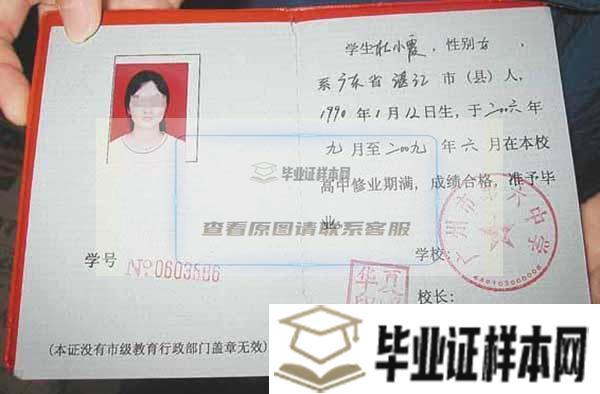 学生杜小霞，性别女，
系广东省湛江市（县）人，
1990年1月12日生，于二00六年
九月至二00九年六月在本校
高中修业期满，成绩合格，准予毕
业。
毕业证样本网
查看原图请联系客服
学校：
学号 №0603586
校长：
(本证没有市级教育行政部门盖章无效)
毕业证样本网